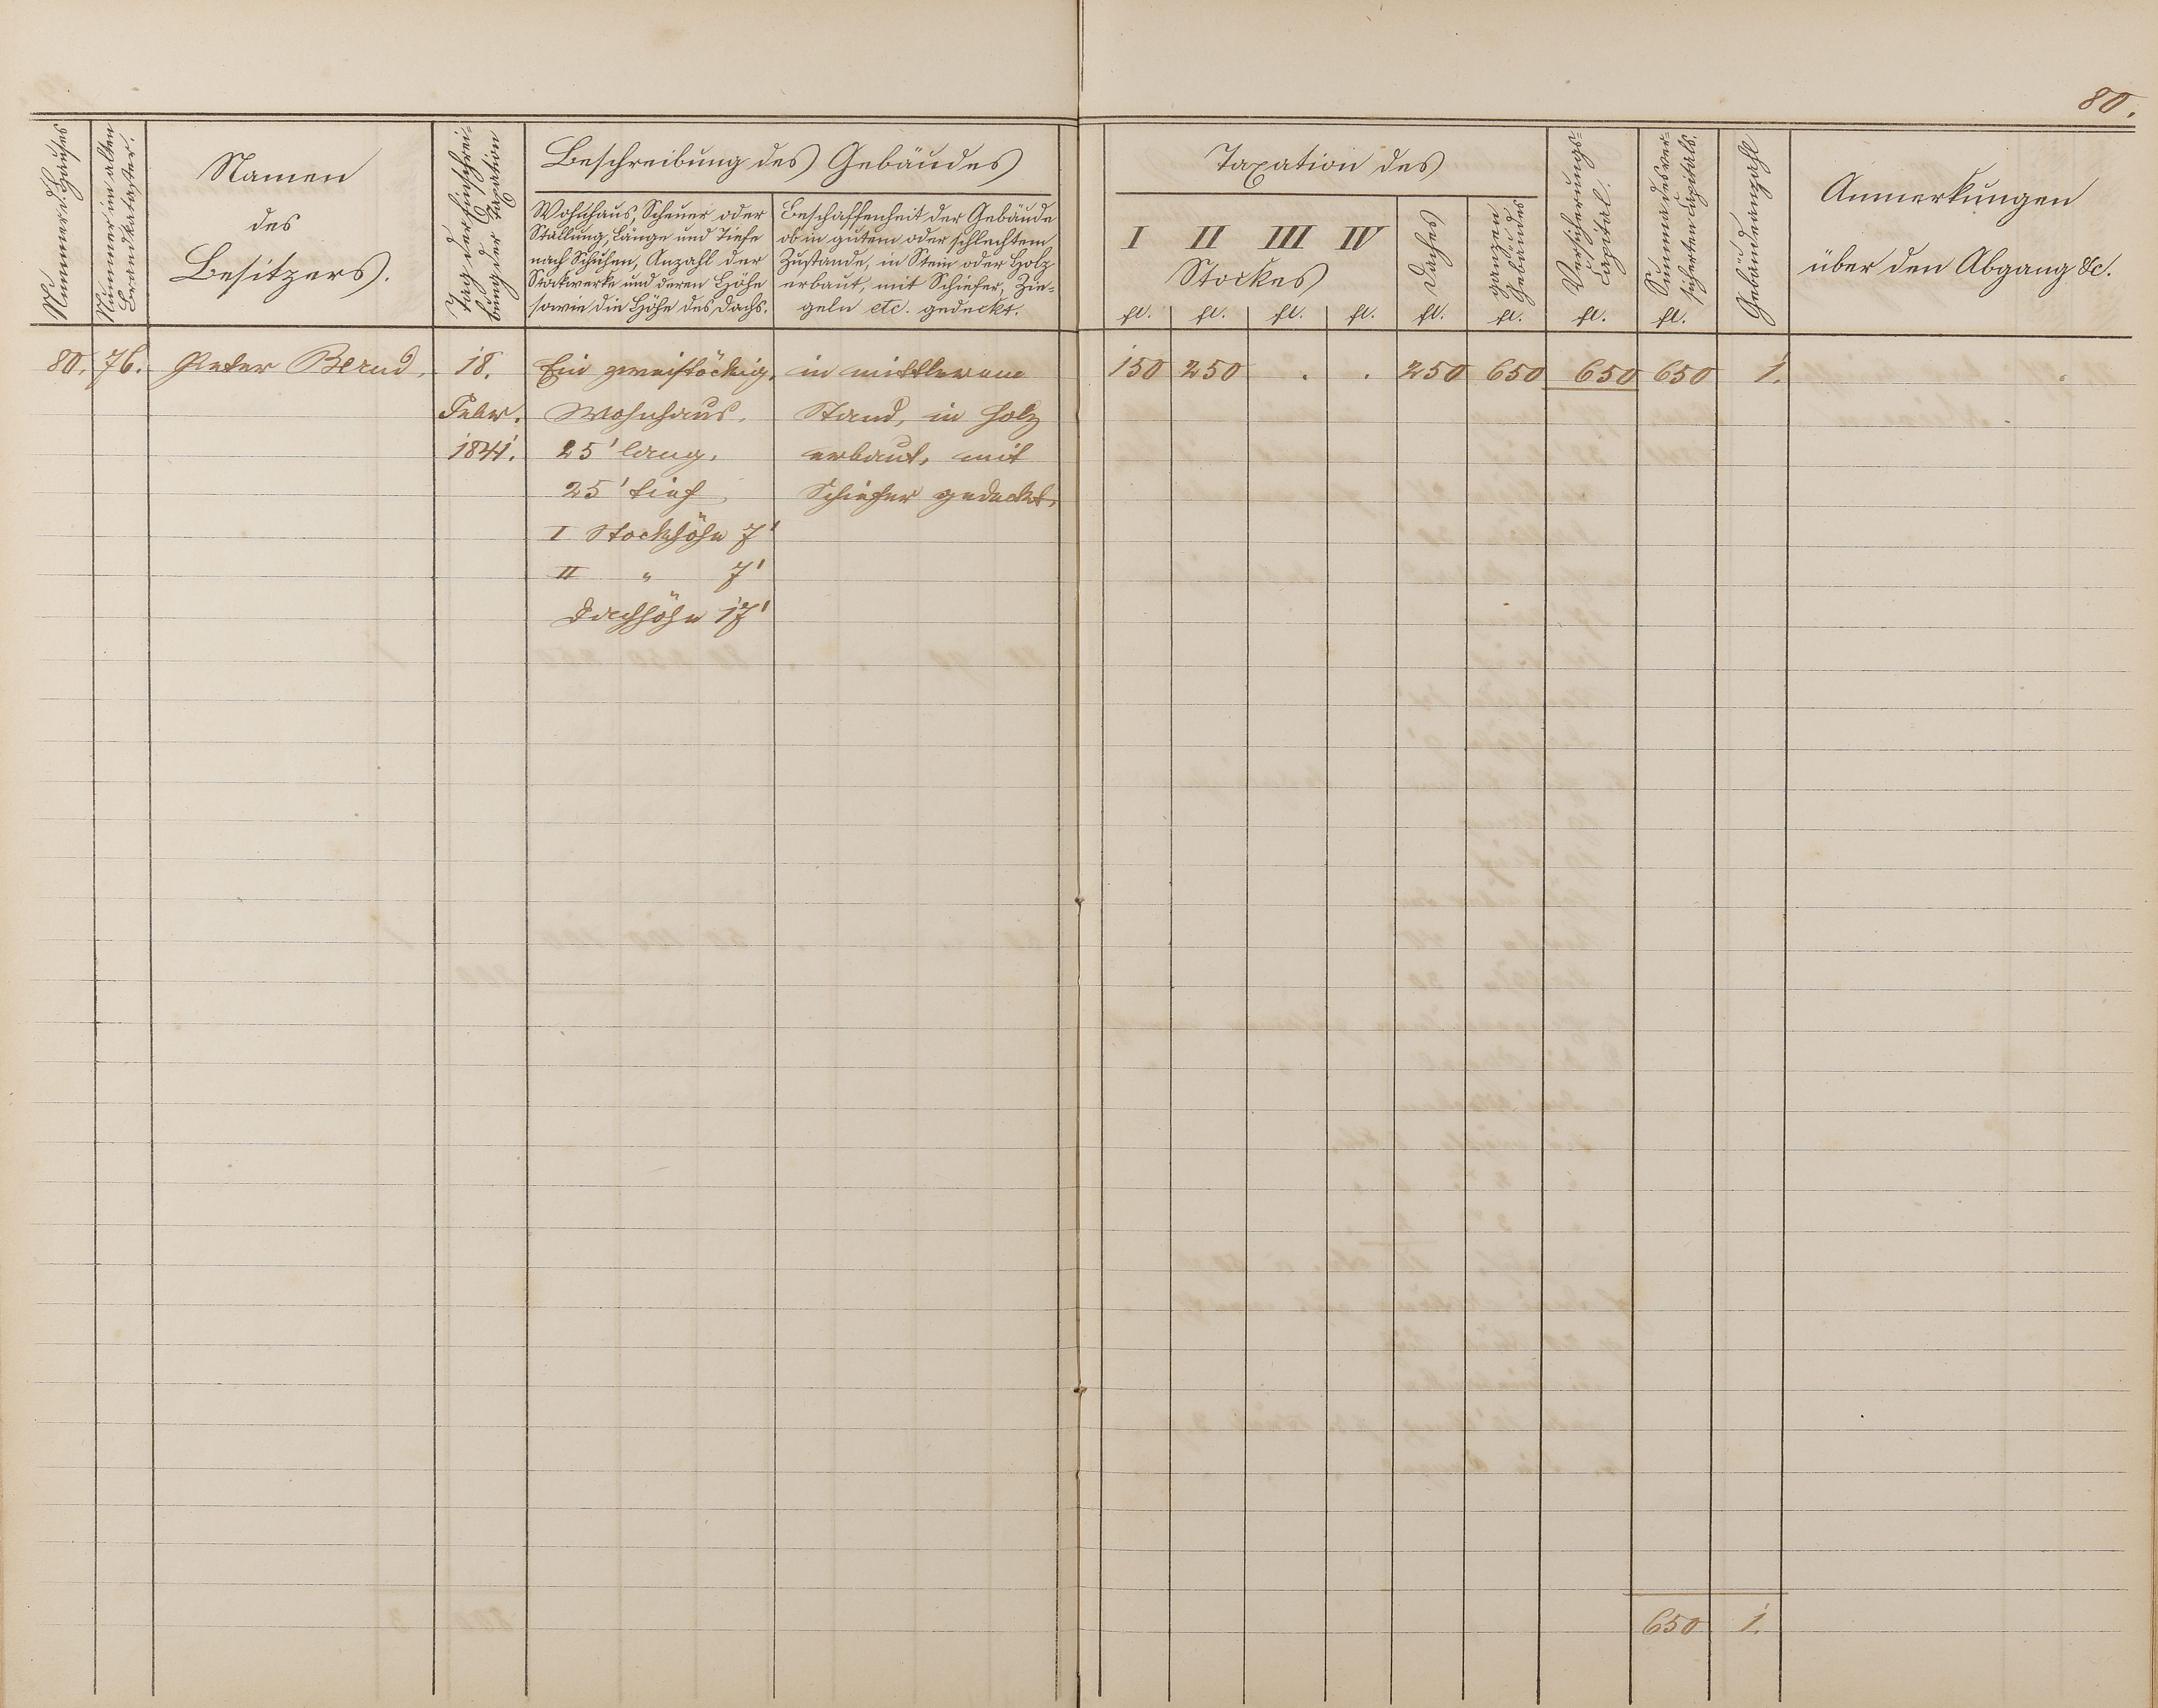 80.
Nummer d. Hauses
Nummer im alten
Brandkataster.
Namen
des
Besitzers.
Tag der Einschrei-
bung der Taxation
Beschreibung des Gebäudes
Wohnhaus, Scheuer oder
Stallung, Länge und Tiefe
nach Schuhen, Anzahl der
Stockwerke und deren Höhe
sowie die Höhe des Dachs.
Beschaffenheit der Gebäude
ob in gutem oder schlechtem
Zustande, in Stein oder Holz
erbaut, mit Schiefer, Zie-
geln etc. gedeckt.
Taxation des
I II III IV
Stockes
Daches
ganzen
Gebäudes
Versicherungs-
Capital.
Summa des ver-
sicherten Capitals.
Gebäudeanzahl
Anmerkungen
über den Abgang &c.
fl. fl. fl. fl. fl. fl. fl. fl.
80. 76. Peter Bernd. 18. Ein zweistöckig. in mittlerem 150 250 . . 250 650 650 650 1.
Febr. Wohnhaus. Stand, in Holz
1841. 25' lang. erbaut, mit
25' tief Schiefer gedeckt.
I Stockhöhe 7'
II " 7'
Dachhöhe 17'
650 1.